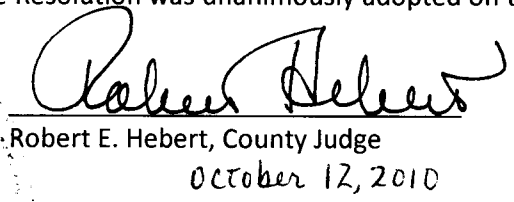 Resolution was unanimously adopted on
Robert Hebert
Robert E. Hebert, County Judge
October 12, 2010